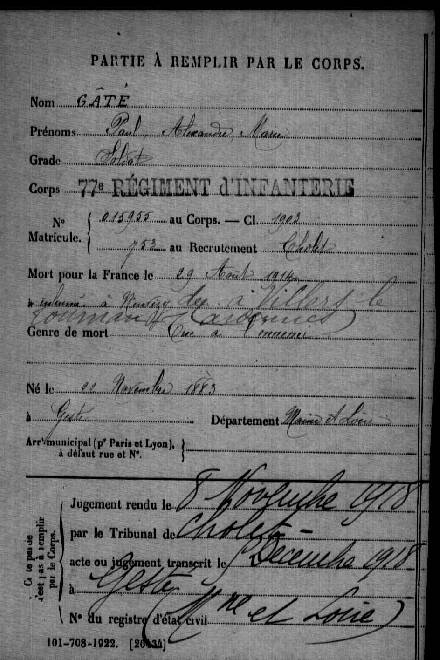 PARTIE À REMPLIR PAR LE CORPS.
Nom GÂTÉ
Prénoms Paul Alexandre Marie
Grade Soldat
Corps 77e RÉGIMENT d'INFANTERIE
No Matricule. { 015955 au Corps. — Cl. 1903
752 au Recrutement Cholet
Mort pour la France le 29 Août 1914
à inhumé à décédé à Villers le
(Ardennes)
Genre de mort Tué à l'ennemi
Né le 22 Novembre 1883
à Gesté Département Maine et Loire
Arrt municipal (pr Paris et Lyon), à défaut rue et No. }
Cette partie n'est pas à remplir par le Corps.
Jugement rendu le 8 Novembre 1918
par le Tribunal de Cholet
acte ou jugement transcrit le Décembre 1918
à Gesté
No du registre d'état civil (Mne et Loire)
101-708-1922. [26434]